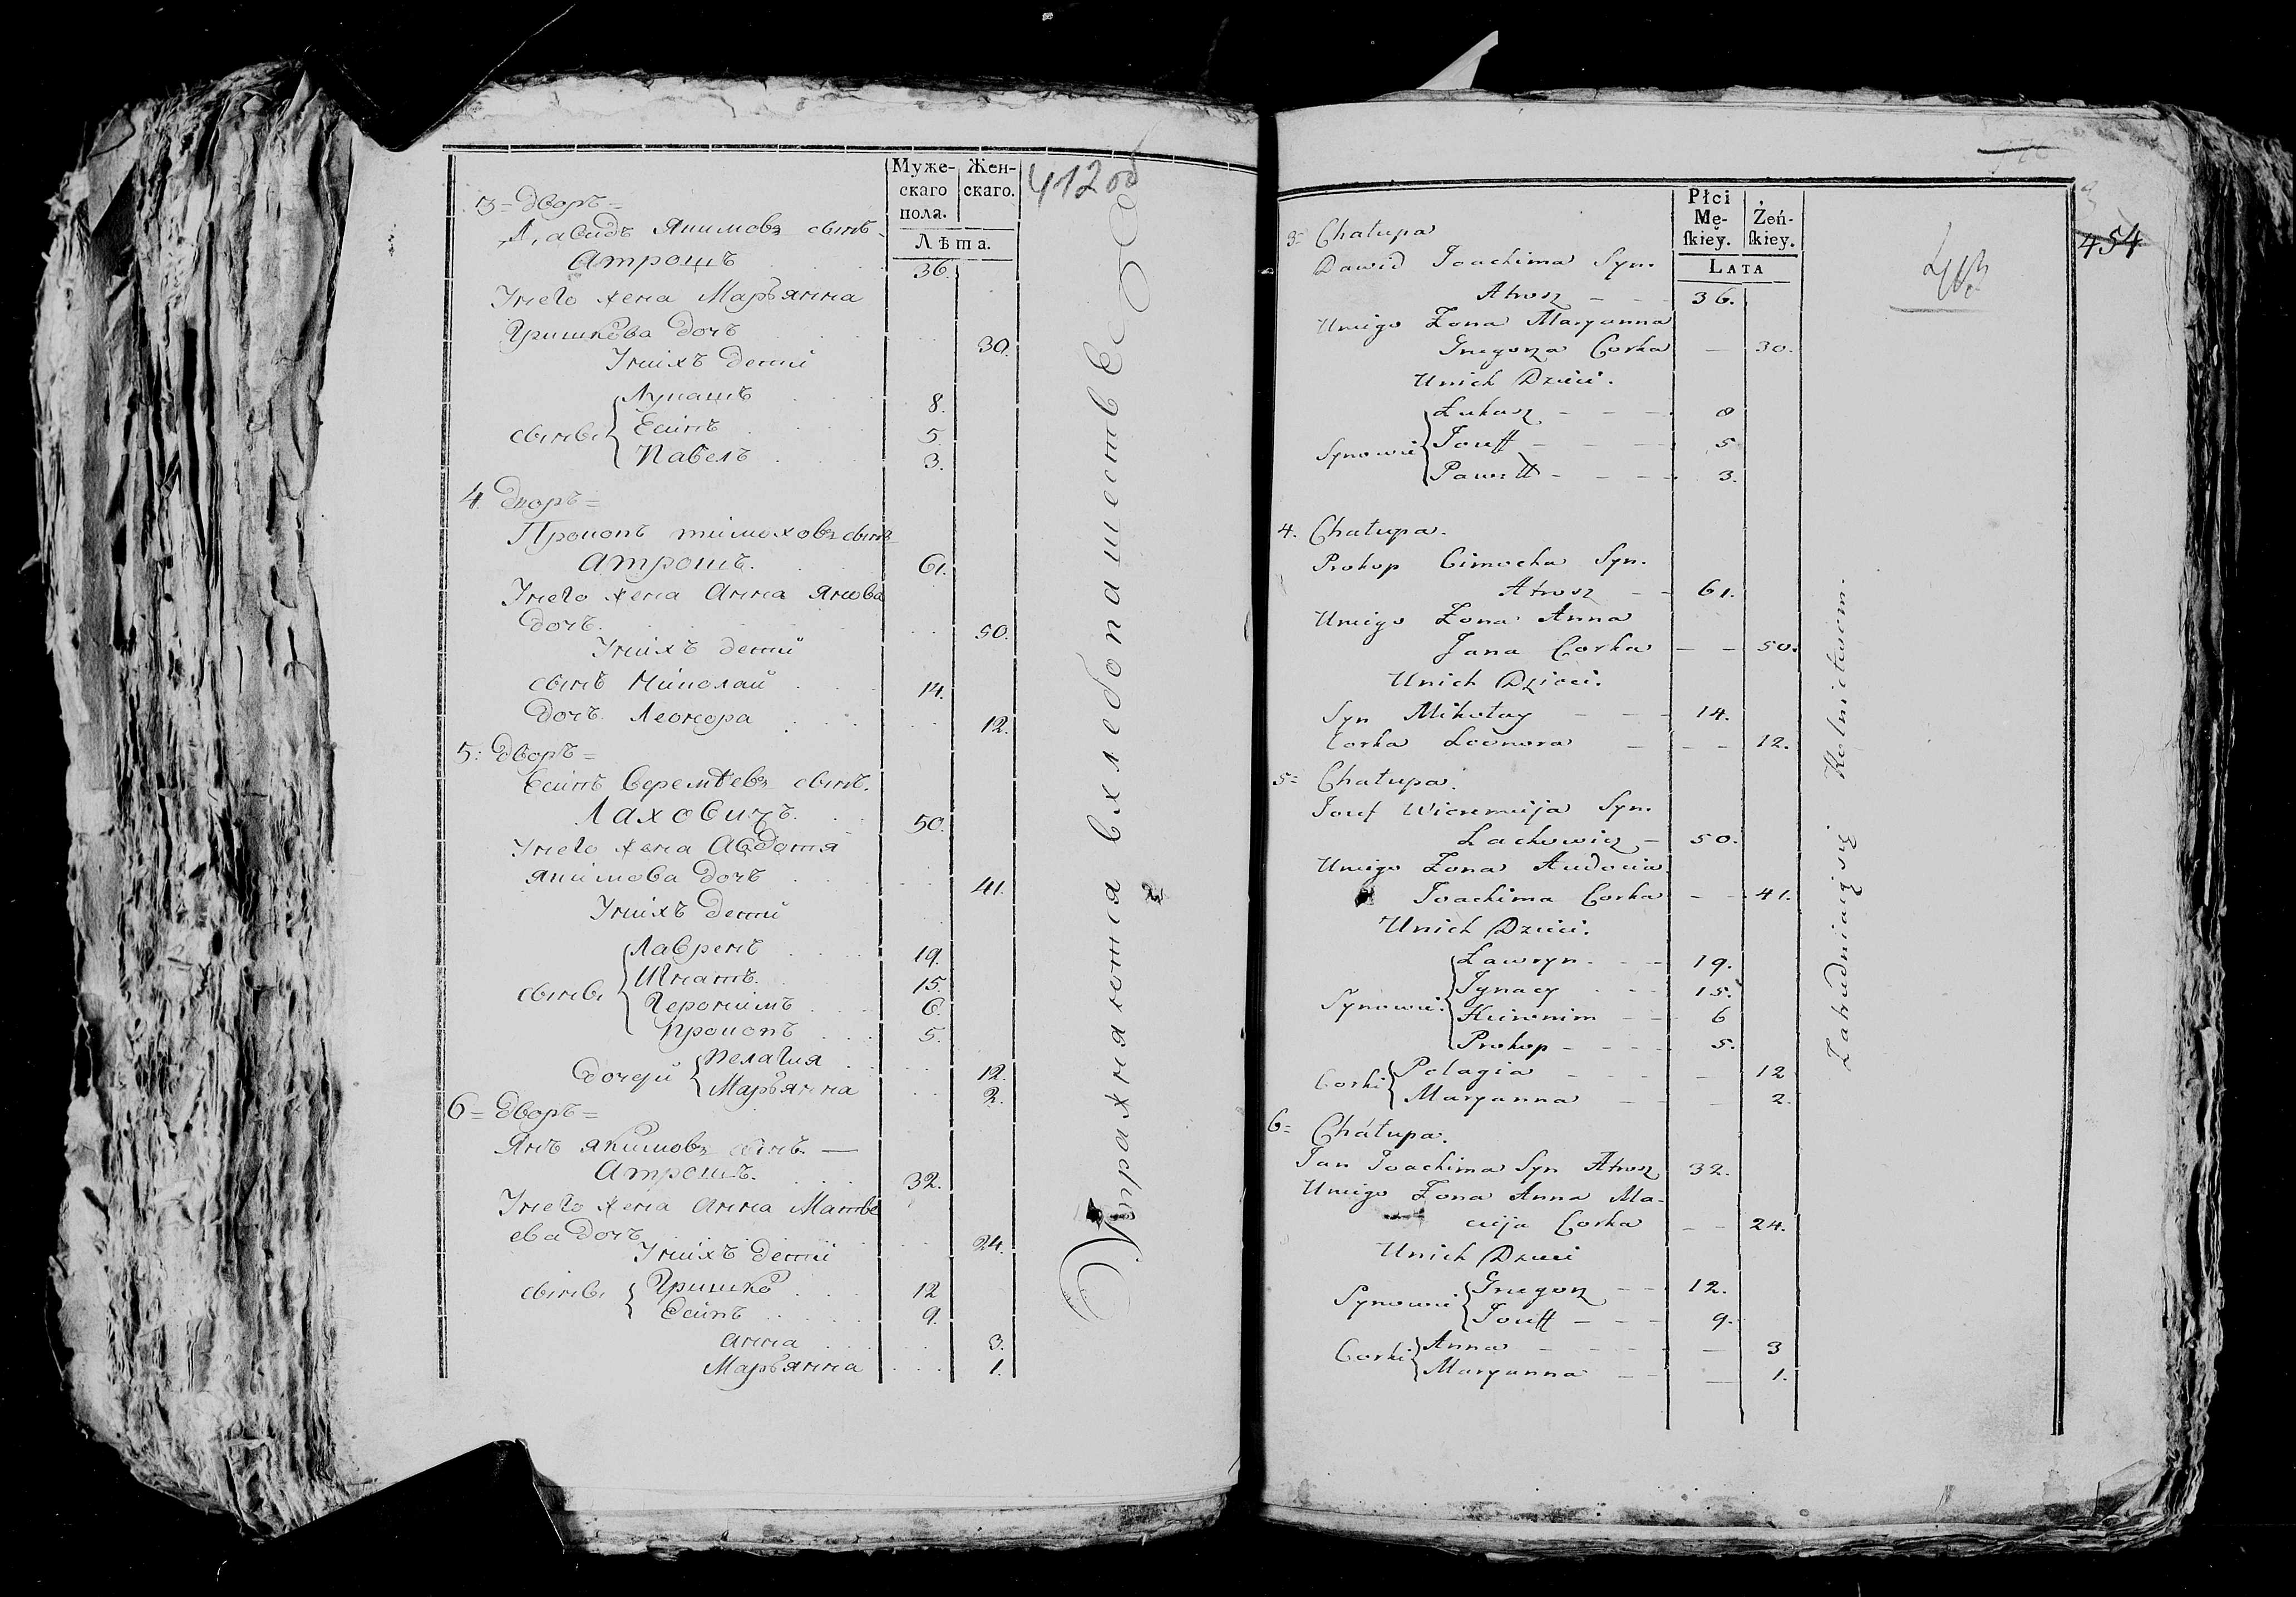 Муже-
скаго
пола.
Жен-
скаго.
Лѣта.
412 об
3 = дворъ =
Давидъ Якимовъ сынъ
Атрошъ 36.
Унего жена Марьянна
Гришкова дочь 30.
Унихъ дети
сыны { Лукашъ 8.
Есипъ 5.
Павелъ 3.
4. дворъ =
Прокопъ тимоховъ сынъ
атрошъ. 61.
Унего жена Анна Янова
дочь. 50.
Унихъ дети
сынъ Николай 14.
дочь Леонора 12.
5: дворъ =
Есипъ Веремѣевъ сынъ.
Лаховичъ. 50.
Унего жена Авдотя
якимова дочь 41.
Унихъ дети
сыны { Лавренъ 19.
Игнатъ. 15.
Героним 6.
Прокопъ 5.
дочери { Пелагия 12.
Марьянна 2.
6 = дворъ =
Янъ якимовъ сынъ —
Атрошъ. 32.
Унего жена Анна Матве
ева дочь 24.
Унихъ дети
сыны { Гришко 12
Есипъ 9.
анна 3.
Марьянна 1.
Упражняются в хлебопашестве
Płci
Mę-
ſkieÿ.
Żeń-
ſkiey.
LATA
454
3 = Chałupa
Dawid Joachima Syn.
Atrosz - - 36.
Uniego Żona Maryanna
Gregorza Corka - 30.
Unich Dzieci.
Synowie { Łukasz - - - 8
Jozeff - - - 5
Paweł - - - 3.
4. Chałupa.
Prokop Cimocha Syn.
Atrosz - - 61.
Uniego Żona Anna
Jana Corka - - 50.
Unich Dzieci.
Syn Mikołay - - - 14.
Corka Leonora - - - 12.
5 = Chałupa.
Jozef Wieremieja Syn.
Lachowicz - 50.
Uniego Żona Audocia
Joachima Corka - - 41.
Unich Dzieci.
Synowie: { Ławryn. - - 19.
Ignacy - - 15.
Hieronim - - 6
Prokop - - - 5.
Corki { Pelagia - - - - 12
Maryanna - - 2.
6 = Chałupa.
Jan Joachima Syn Atrosz 32.
Uniego Żona Anna Ma-
cieja Corka - - 24.
Unich Dzieci
Synowie { Gregorz - - 12.
Jozeff - - - 9.
Corki { Anna - - - - - 3
Maryanna - - - 1.
Zatrudniaią się Rolnictwem.